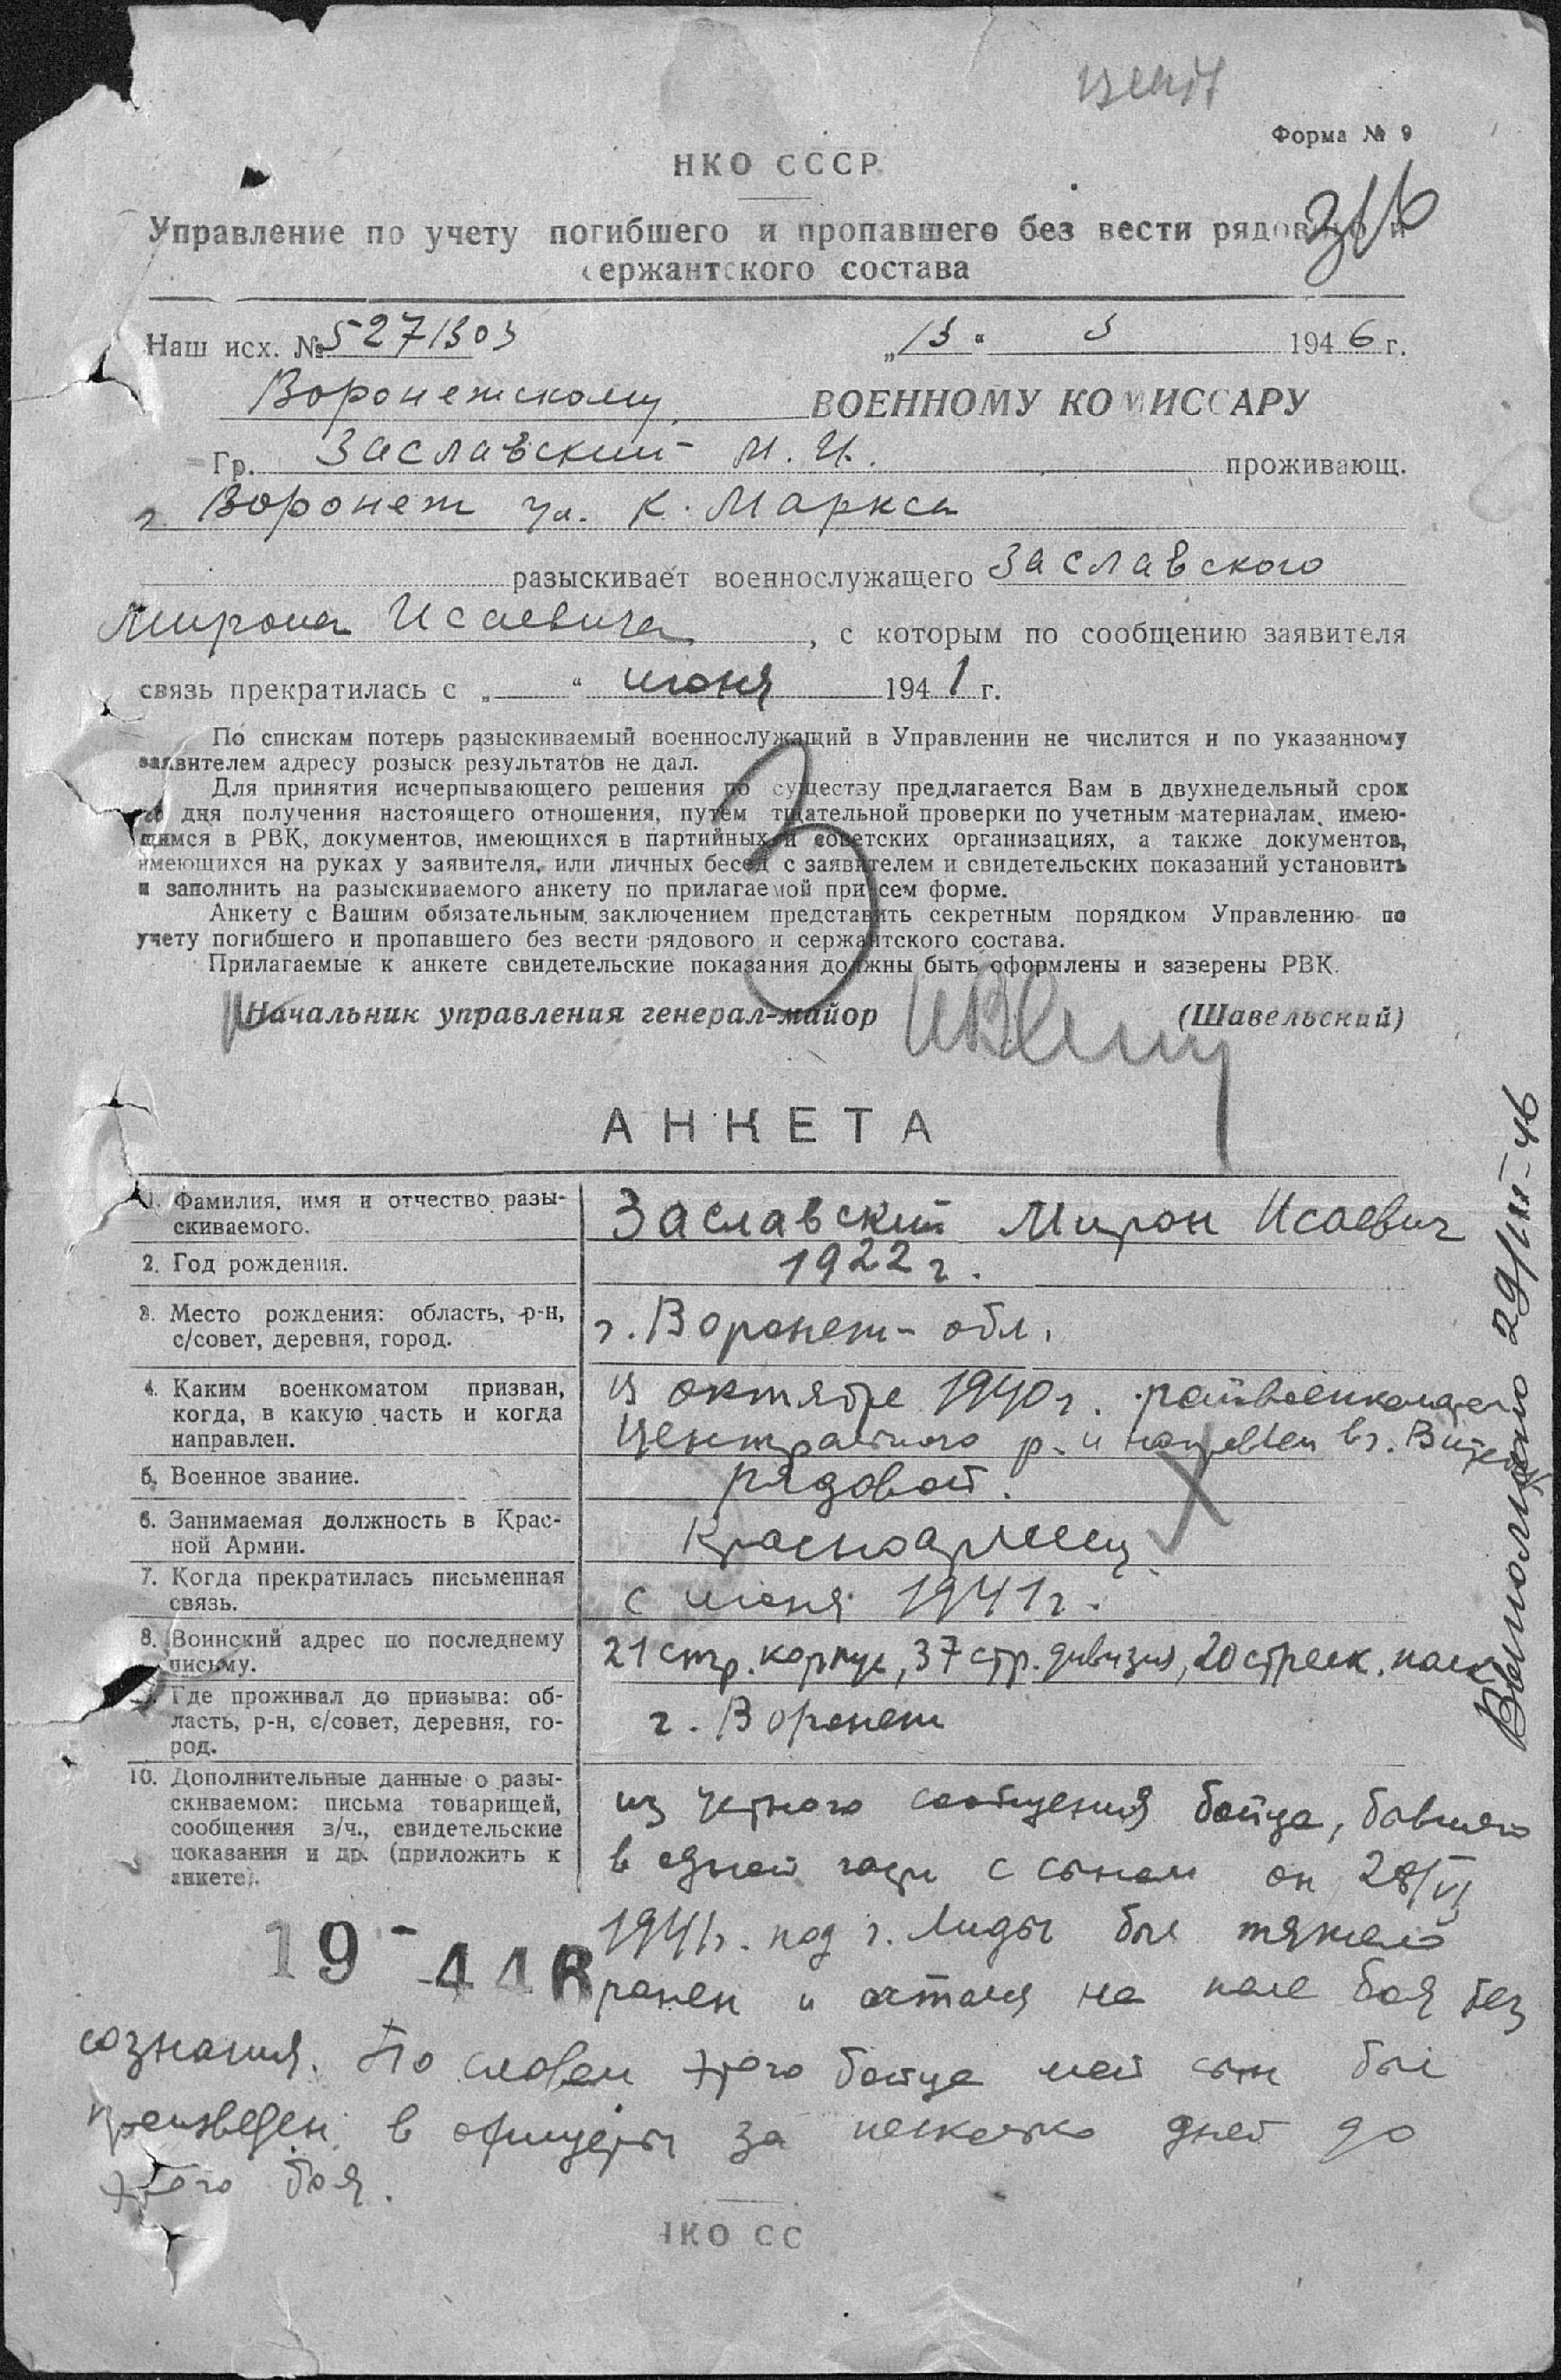 Форма № 9
НКО СССР
Управление по учету погибшего и пропавшего без вести рядового и
сержантского состава
Наш исх. № 5271303 „13“ 3 1946 г.
Воронежскому ВОЕННОМУ КОМИССАРУ
Гр. Заславский И. И. проживающ.
г. Воронеж ул. К. Маркса
разыскивает военнослужащего Заславского
Мирона Исаевича, с которым по сообщению заявителя
связь прекратилась с „ “ июня 1941 г.
По спискам потерь разыскиваемый военнослужащий в Управлении не числится и по указанному
заявителем адресу розыск результатов не дал.
Для принятия исчерпывающего решения по существу предлагается Вам в двухнедельный срок
со дня получения настоящего отношения, путем тщательной проверки по учетным материалам, имею-
щимся в РВК, документов, имеющихся в партийных и советских организациях, а также документов,
имеющихся на руках у заявителя, или личных бесед с заявителем и свидетельских показаний установить
и заполнить на разыскиваемого анкету по прилагаемой при сем форме.
Анкету с Вашим обязательным заключением представить секретным порядком Управлению по
учету погибшего и пропавшего без вести рядового и сержантского состава.
Прилагаемые к анкете свидетельские показания должны быть оформлены и заверены РВК.
Начальник управления генерал-майор (Шавельский)
АНКЕТА
1. Фамилия, имя и отчество разы-
скиваемого.
Заславский Мирон Исаевич
2. Год рождения.
1922 г.
3. Место рождения: область, р-н,
с/совет, деревня, город.
г. Воронеж - обл.
4. Каким военкоматом призван,
когда, в какую часть и когда
направлен.
в октябре 1940 г. райвоенкоматом
Центрального р. и направлен в г. Витебск
5. Военное звание.
рядовой.
6. Занимаемая должность в Крас-
ной Армии.
Красноармеец
7. Когда прекратилась письменная
связь.
с июня 1941 г.
8. Воинский адрес по последнему
письму.
21 стр. корпус, 37 стр. дивизия, 20 стрелк. полк
9. Где проживал до призыва: об-
ласть, р-н, с/совет, деревня, го-
род.
г. Воронеж
10. Дополнительные данные о разы-
скиваемом: письма товарищей,
сообщения з/ч., свидетельские
показания и др. (приложить к
анкете).
из устного сообщения бойца, бывшего
в одной части с сыном он 28/VI
1941 г. под г. Лиды был тяжело
ранен и остался на поле боя без
сознания. По словам этого бойца мой сын был
произведен в офицеры за несколько дней до
этого боя.
19 - 446
Выполнено 29/III-46
НКО СС